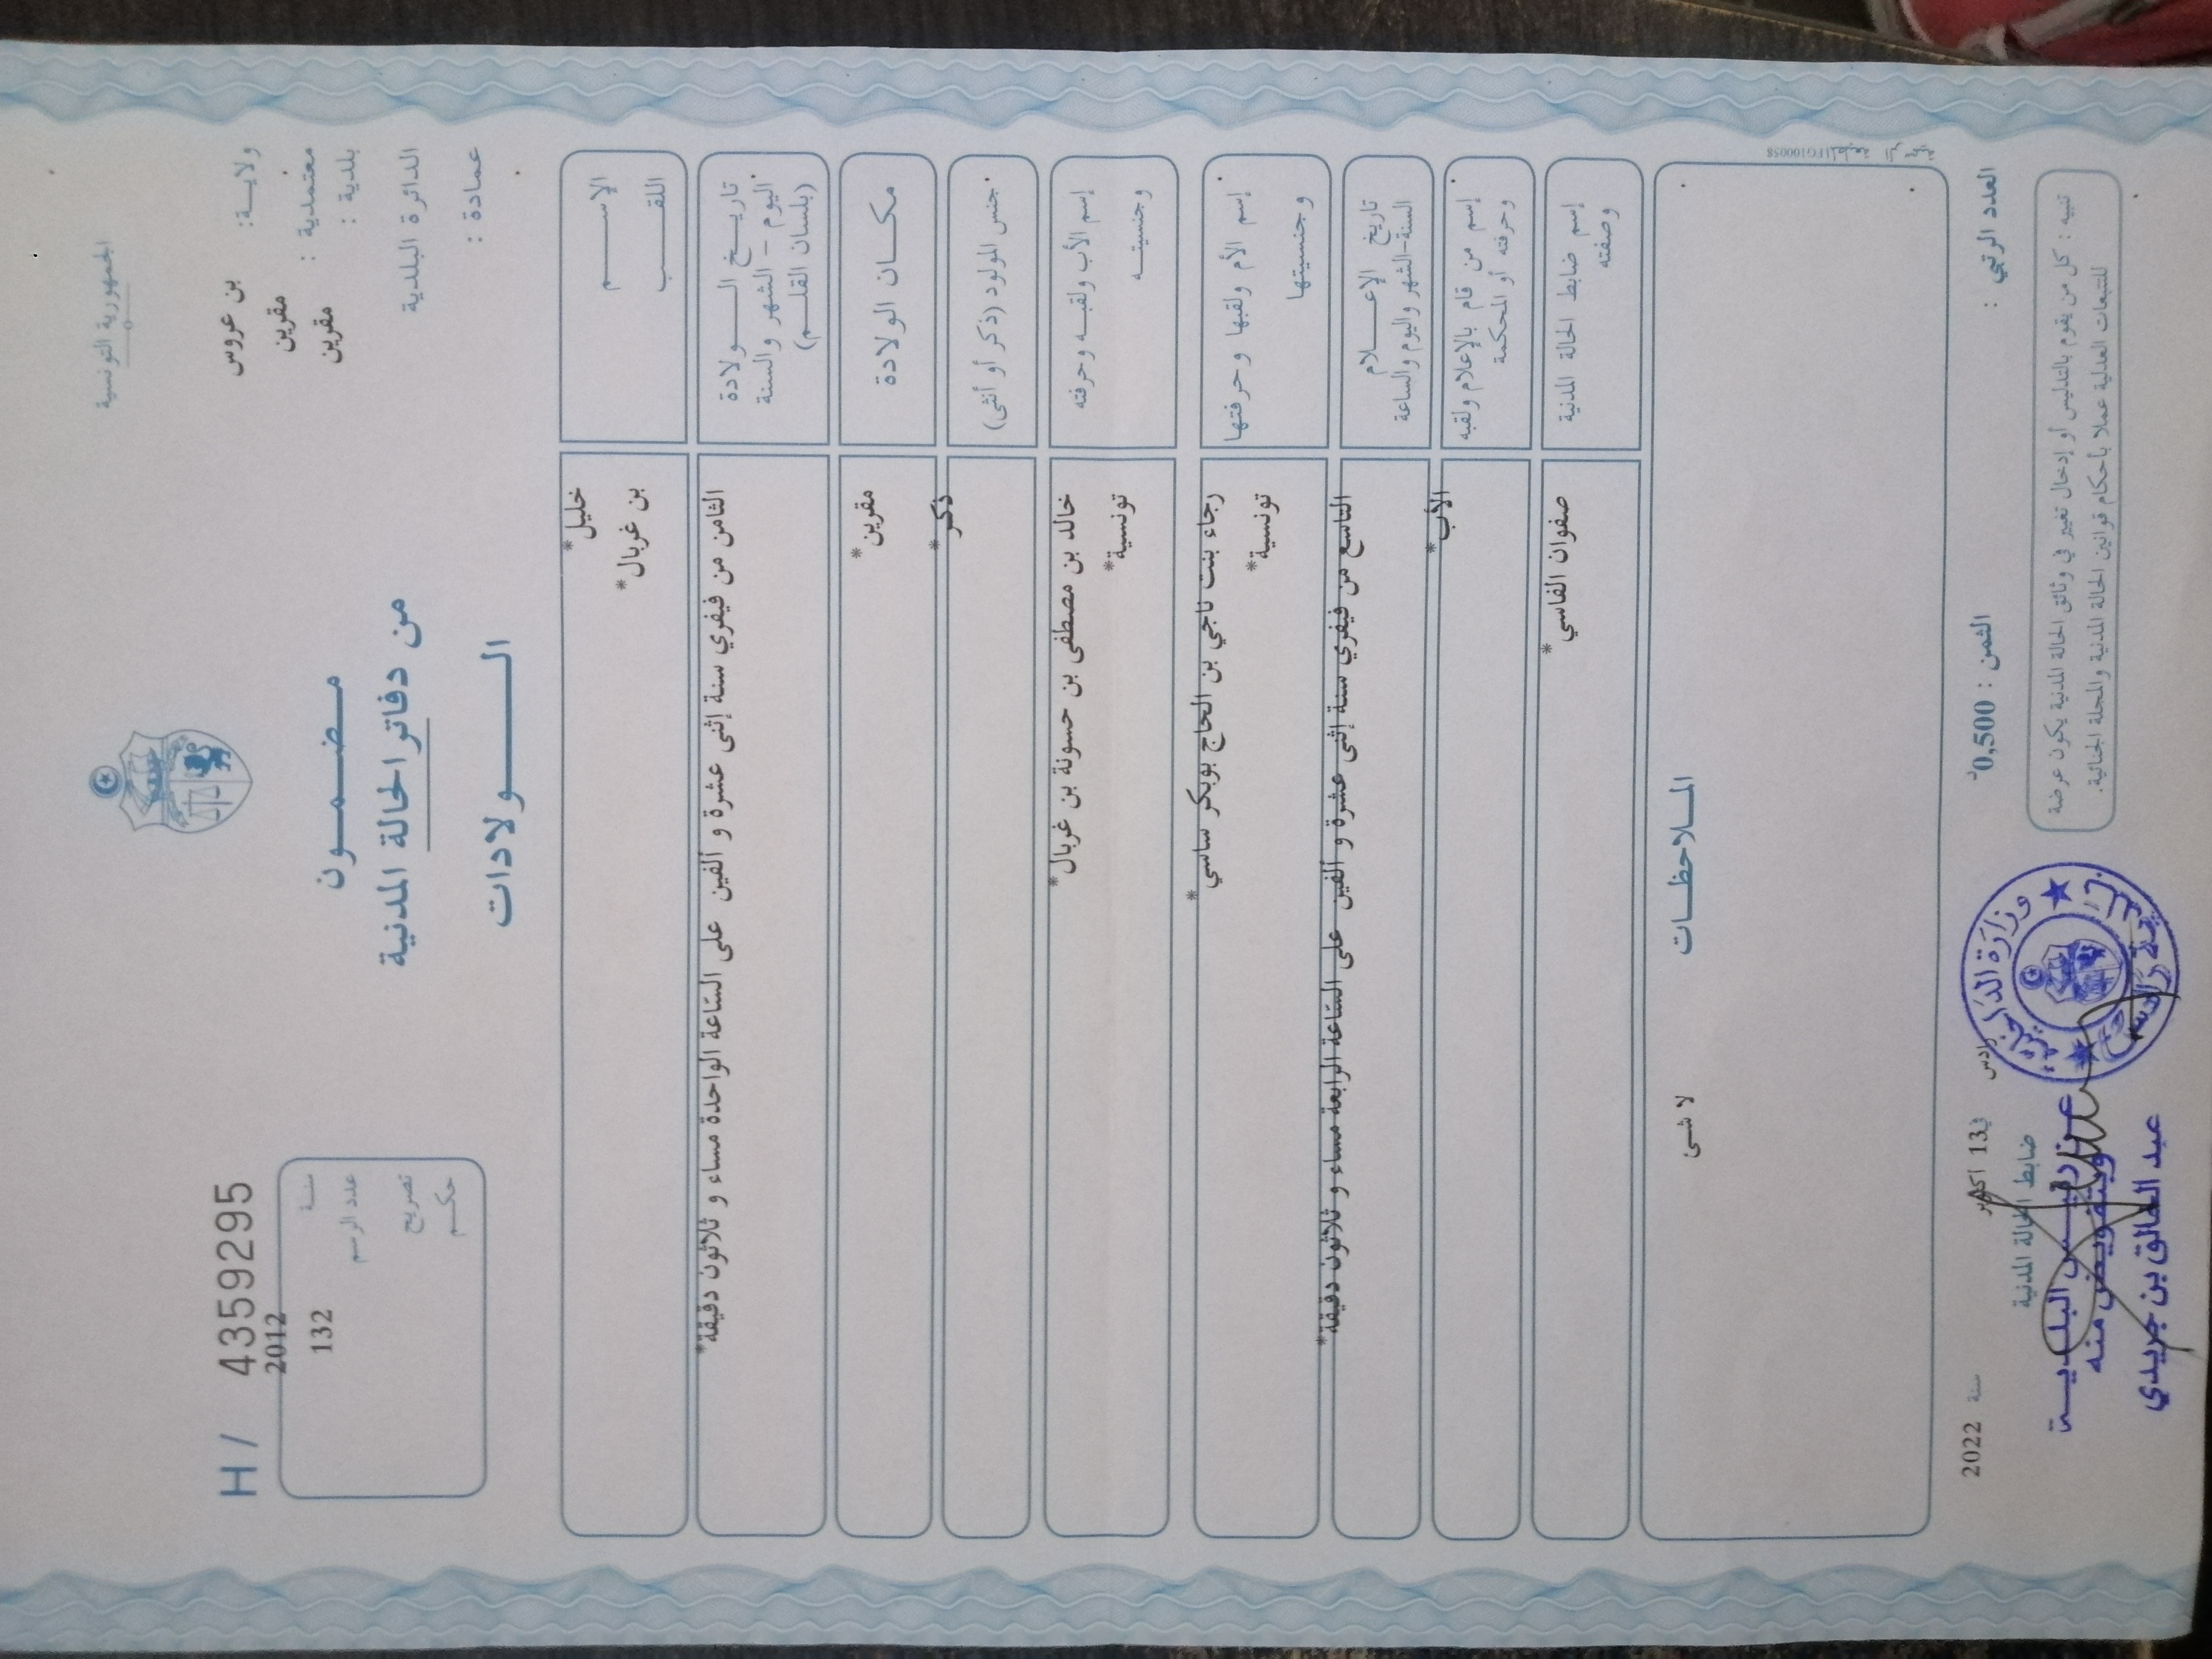 الجمهورية التونسية
ولايـــة: بن عروس
معتمدية : مقرين
بلدية : مقرين
الدائرة البلدية
عمادة :
مـضـمـــون
من دفاتر الحالة المدنية
الـــــولادات
H / 4359295
سنــة 2012
عدد الرسم 132
تصريح
حكــم
الإســـــم خليل*
اللقـــــب بن غربال*
تاريـــخ الــــولادة الثامن من فيفري سنة إثنى عشرة و ألفين على السّاعة الواحدة مساء و ثلاثون دقيقة*
اليوم - الشهر والسنة
(بلسان القلــم)
مكـــان الولادة مقرين*
جنس المولود (ذكر أو أنثى) ذكر*
إسم الأب ولقبــه وحرفته خالد بن مصطفى بن حسونة بن غربال*
وجنسيتــه تونسية*
إسم الأم ولقبها وحرفتها رجاء بنت ناجي بن الحاج بوبكر ساسي*
وجنسيتها تونسية*
تاريخ الإعــــلام التاسع من فيفري سنة إثنى عشرة و ألفين على السّاعة الرابعة مساء و ثلاثون دقيقة*
السنة-الشهر واليوم والساعة
إسم من قام بالإعلام ولقبه الأب*
وحرفته أو المحكمة
إسم ضابط الحالة المدنية صفوان الفاسي*
وصفته
الملاحظــات
لا شىء
العدد الرتبي :
الثمن : 0,500د
تنبيه : كل من يقوم بالتدليس أو إدخال تغيير في وثائق الحالة المدنية يكون عرضة
للتتبعات العدلية عملا بأحكام قوانين الحالة المدنية والمجلة الجنائية.
رادس في 13 أكتوبر سنة 2022
ضابط الحالة المدنية
عن رئيـس البلديــة
وبتفويض منه
عبد الخالق بن جريدي
وزارة الداخلية